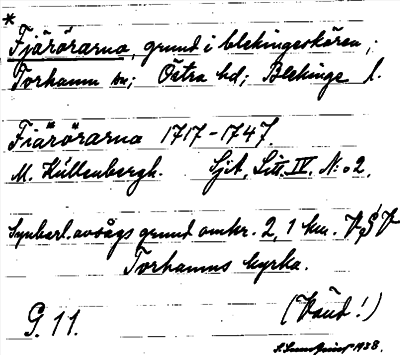 *
Fjärörarna, grund i blekingeskären;
Torhamn sn; Östra hd; Blekinge l.
Fiärörarna 1717-1747.
M. Küllenbergh. SjA, Litt. IV, N:o 2.
Synberl. avsågs grund omkr. 2,1 km. V§V
Torhamns kyrka.
G. 11. (Vänd!)
1938.